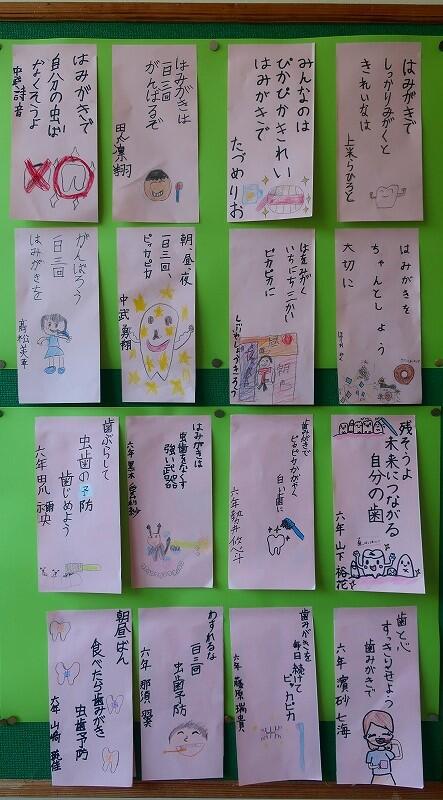 はみがきで
しっかりみがくと
きれいなは
みんなのは
ぴかぴかきれい
はみがきで
たづめりお
はみがきは
一日三回
がんばるぞ
はみがきで
自分の虫ば
なくそうよ
はみがきを
ちゃんとしよう
大切に
はをみがく
いちにちさんかい
ピカピカに
朝、昼、夜
一日三回、
ピッカピカ
中武勇翔
がんばろう
一日三回
はみがきを
高松美幸
残そうよ
未来につながる
自分の歯
六年 山下裕花
歯みがきで
ピカピカかがやく
白い歯に
はみがきは
虫歯をなくす
強い武器
歯ぶらして
虫歯の予防
歯じめよう
歯と心
すっきりさせよう
歯みがきで
六年 濱砂七海
歯みがきを
毎日続けて
ピッカピカ
六年 藤原瑞貴
わすれるな
一日三回
虫歯予防
六年 那須翼
朝昼ばん
食べたら歯みがき
虫歯予防